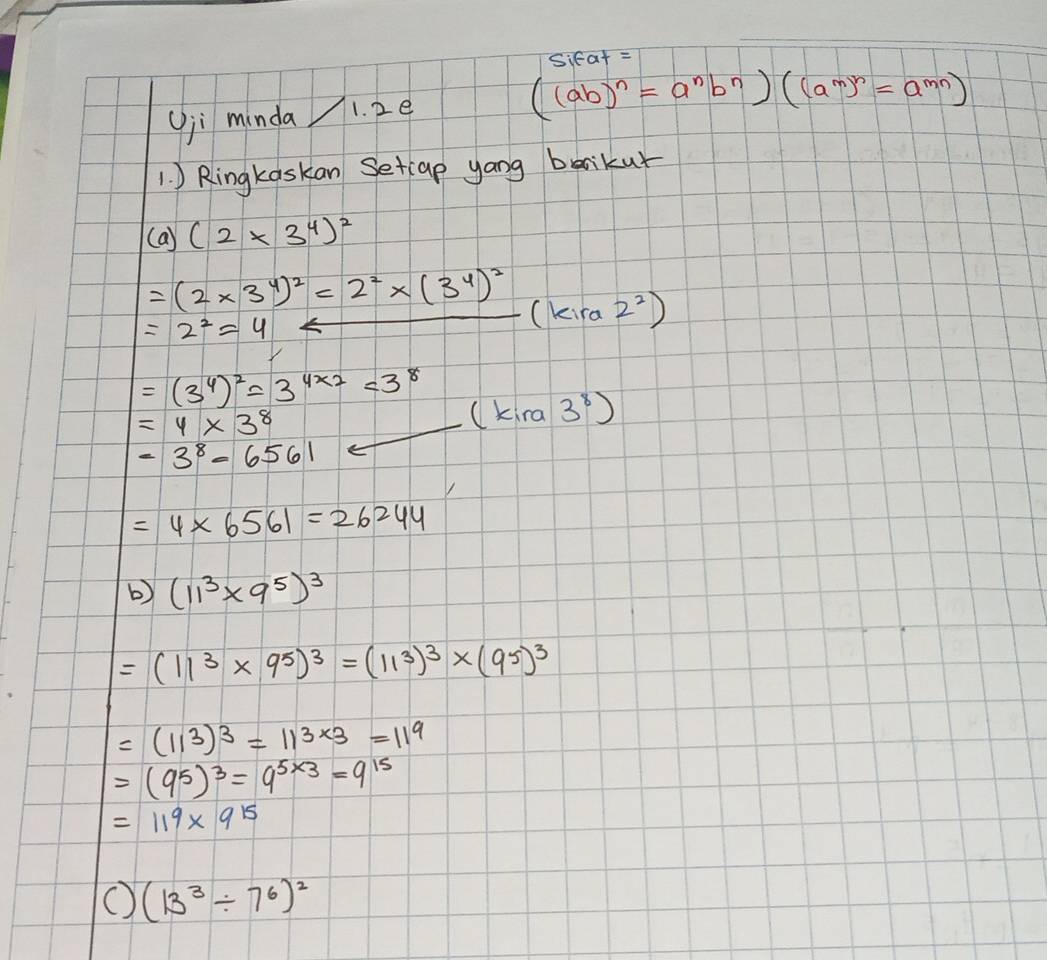 Sifat =
((ab)ⁿ = aⁿbⁿ) ((aᵐ)ⁿ = aᵐⁿ)
Uji minda / 1.2e
1.) Ringkaskan Setiap yang berikut
(a) (2 × 3⁴)²
= (2 × 3⁴)² = 2² × (3⁴)²
= 2² = 4 ← (kira 2²)
= (3⁴)² = 3⁴ˣ² = 3⁸
= 4 × 3⁸
= 3⁸ = 6561 ← (kira 3⁸)
= 4 × 6561 = 26244
b) (11³ × 9⁵)³
= (11³ × 9⁵)³ = (11³)³ × (9⁵)³
= (11³)³ = 11³ˣ³ = 11⁹
= (9⁵)³ = 9⁵ˣ³ = 9¹⁵
= 11⁹ × 9¹⁵
C) (13³ ÷ 7⁶)²